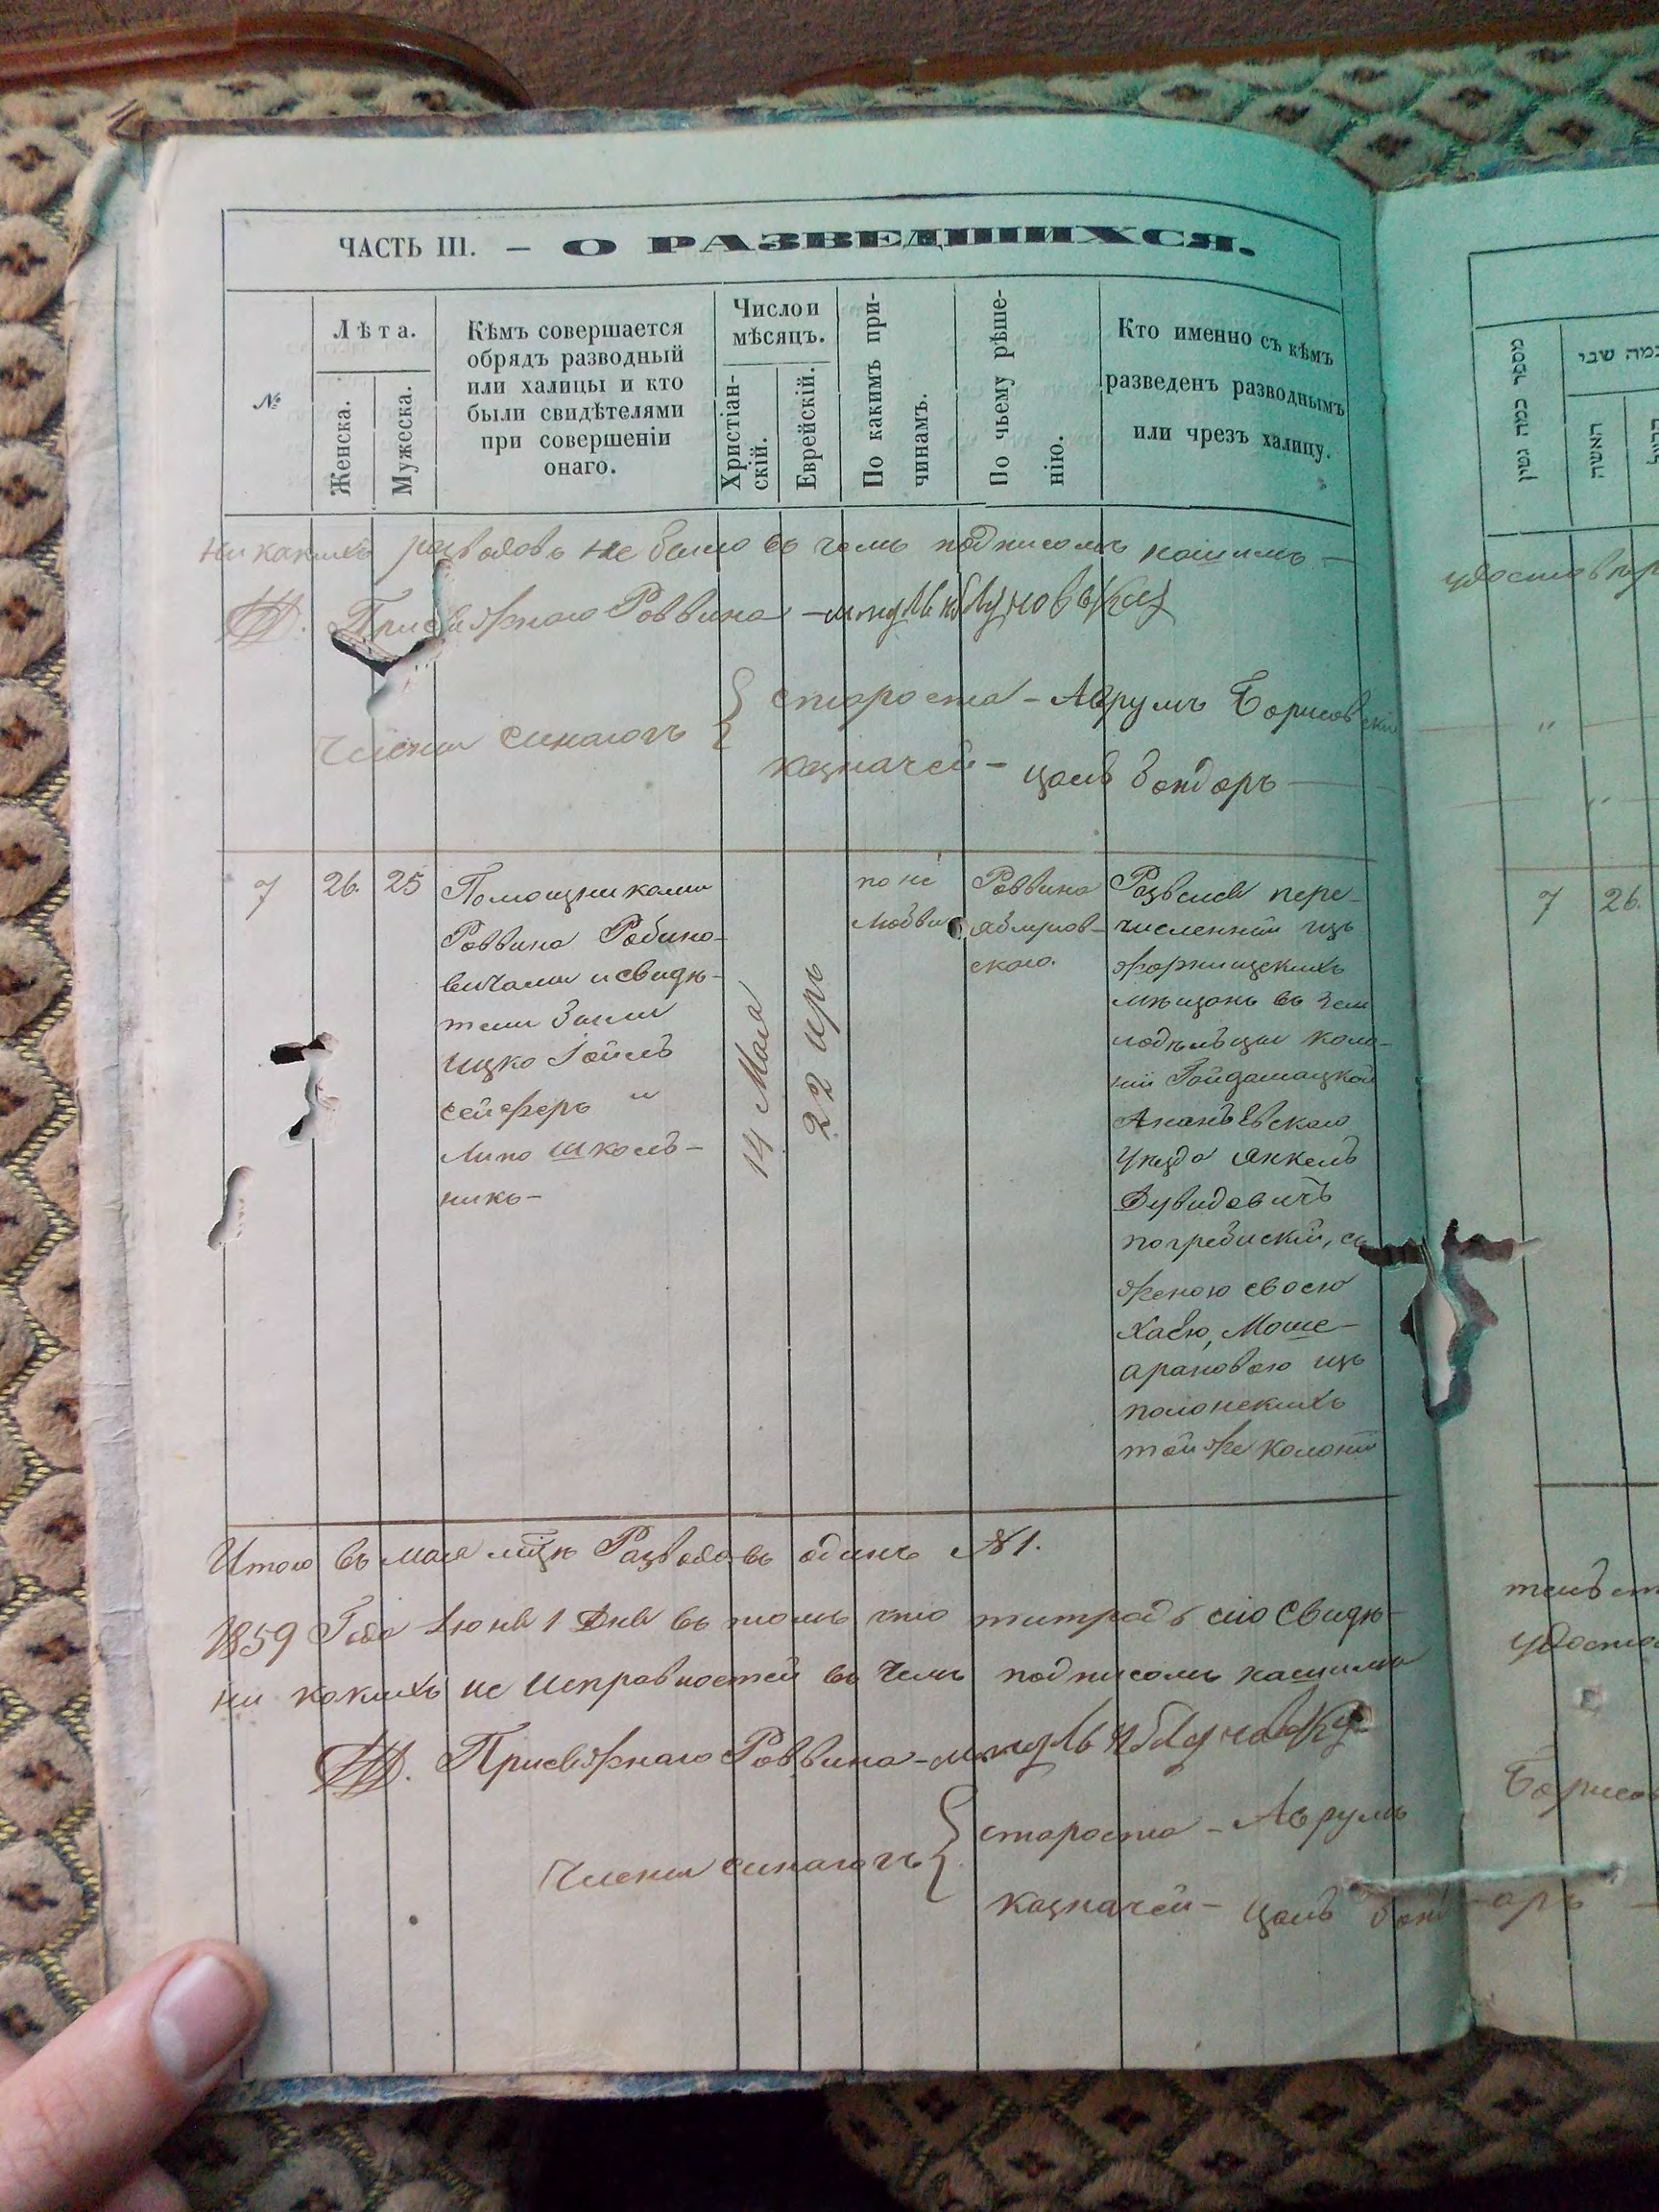 ЧАСТЬ III. — О РАЗВЕДШИХСЯ.
№
Лѣта.
Женска.
Мужеска.
Кѣмъ совершается
обрядъ разводный
или халицы и кто
были свидѣтелями
при совершеніи
онаго.
Число и
мѣсяцъ.
Христіан-
скій.
Еврейскій.
По какимъ при-
чинамъ.
По чьему рѣше-
нію.
Кто именно съ кѣмъ
разведенъ разводнымъ
или чрезъ халицу.
ни какихъ разводовъ не было въ чемъ подписомъ нашимъ —
Присяжнаго Раввина —
Члены синагогъ { староста — Аврумъ Борисовскій
казначей — Цаль Бондаръ —
7
26.
25
Помощниками
Раввина Рабино-
вичами и свидѣ-
тели Заили
Ицко Гойлъ
Сейферъ и
Липо Школь-
никъ —
14 Мая
22 Иръ
по не
любви
Раввина
яблунов-
скаго.
Развелся пере-
численный изъ
мѣщанъ въ Зем
лодѣльцы коло-
ніи Гайдамацкой
Ананьевскаго
Уѣзда Янкель
Дувидовичъ
погребискій, съ
женою своею
Хавою, Моше-
ароновою изъ
полонскихъ
той же колоніи
Итого въ мая мцѣ Разводовъ одинъ №1.
1859 Года Іюня 1 Дня въ томъ что титрадь сію Свидѣ-
ни какихъ не исправностей въ чемъ подписомъ нашимъ
Присяжнаго Раввина —
Члены синагогъ { староста — Аврумъ
казначей — Цаль Бондаръ —
מספר כמה גטין
כמה שני
האשה
7
26.
Борисов